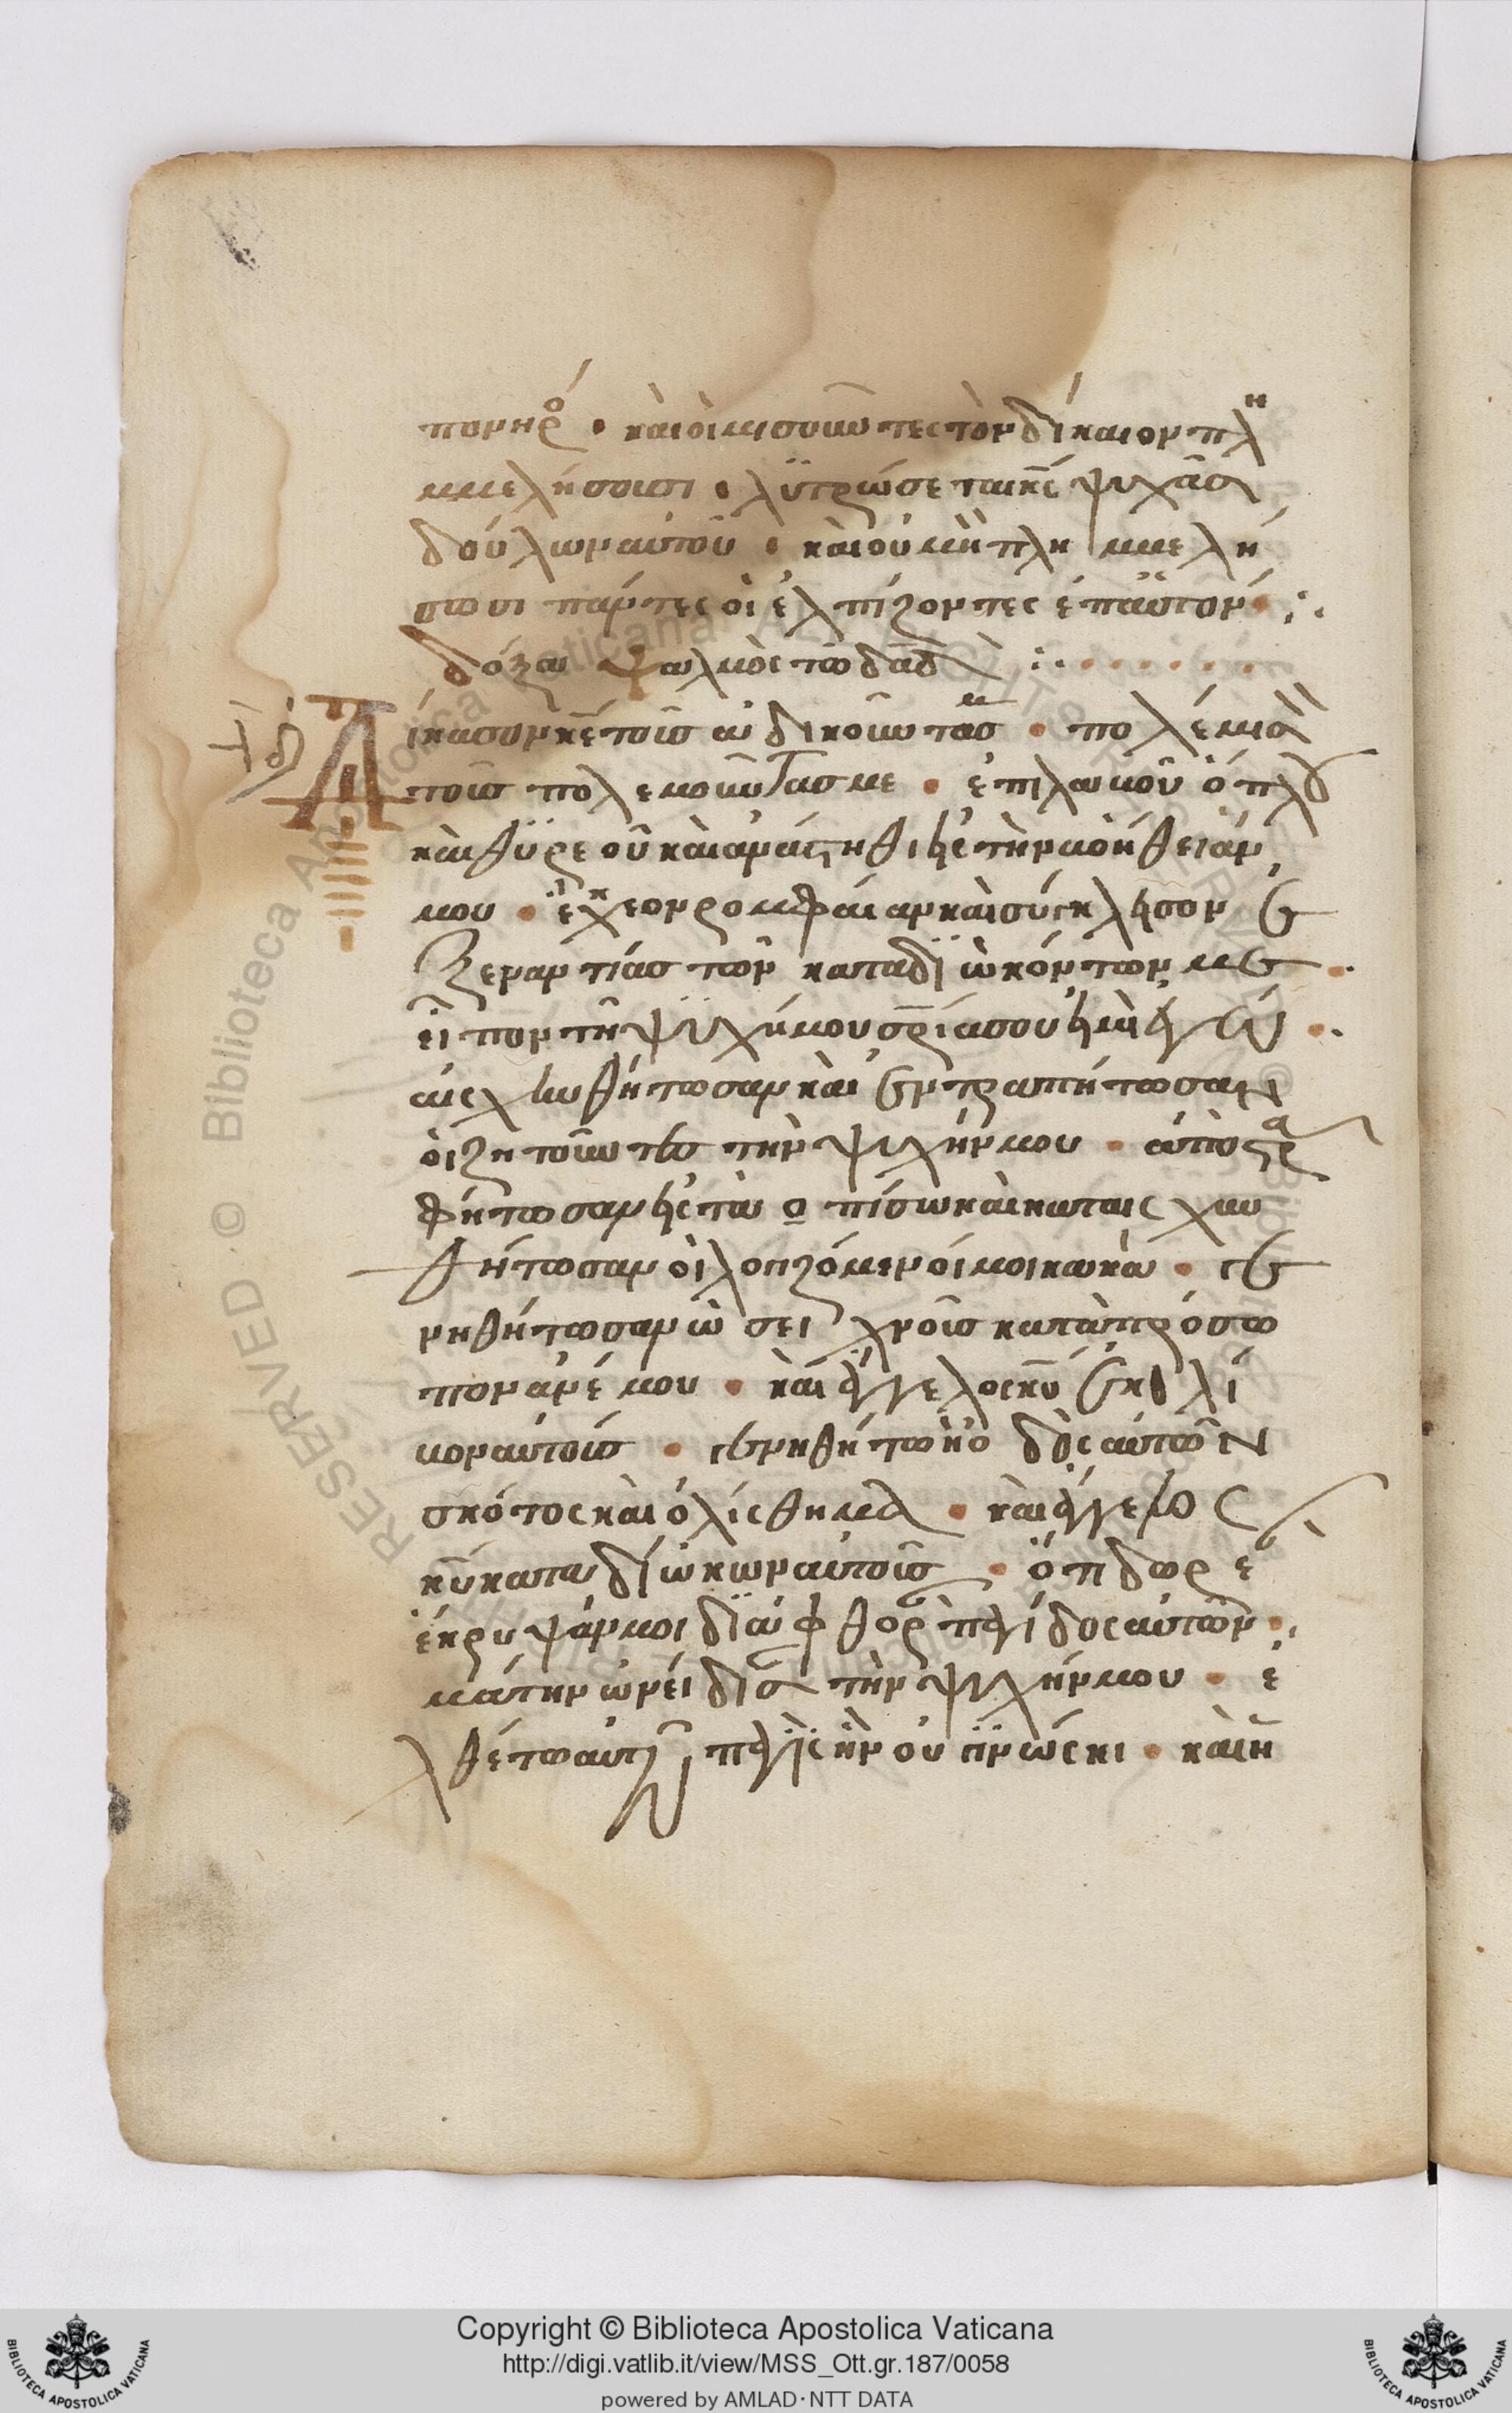 πονηρὸ · καὶ οἱ μισοῦντες τὸν δίκαιον πλη
μμελήσουσι · λυτρώσεται κ̅ς ψυχὰς
δούλων αὐτοῦ · καὶ οὐ μὴ πλημμελή
σωσι πάντες οἱ ἐλπίζοντες ἐπ αὐτόν
δόξα ψαλμὸς τῶ δα̅δ
λδ
Δίκασον κ̅ε τοὺς ἀδικοῦντάς με · πολέμισ
τοὺς πολεμοῦντας με · ἐπιλαβοῦ ὅπλου
καὶ θυρεοῦ καὶ ἀνάστηθι εἰς τὴν βοήθειάν
μου · ἔκχεον ρομφαίαν καὶ σύγκλησον ἐ
ξεναντίας τῶν καταδιωκόντων με ·
εἶπον τῆ ψυχῆ μου σ̅ρία σου εἰμὶ ἐγώ ·
αἰσχυνθήτωσαν καὶ ἐντραπήτωσαν
οἱ ζητοῦντες τὴν ψυχήν μου · ἀποστρα
φήτωσαν εἰς τὰ ὀπίσω καὶ καταισχυν
θήτωσαν οἱ λογιζόμενοί μοι κακὰ · γε
νηθήτωσαν ὡσεὶ χνοῦς κατὰ πρόσω
πον ἀνέμου · καὶ ἄγγελος κ̅υ ἐκθλί
βον αὐτούς · γενηθήτω ἡ ὁδὸς αὐτῶν
σκότος καὶ ὀλίσθημα · καὶ ἄγγελος
κ̅υ καταδιώκων αὐτοὺς · ὅτι δωρε
ἔκρυψάν μοι διαφθορὰ παγίδος αὐτῶν ·
μάτην ὠνείδισαν τὴν ψυχήν μου · ἐ
λθέτω αὐτῆ παγὶς ἣν οὐ γινώσκι · καὶ ἡ
Copyright © Biblioteca Apostolica Vaticana
http://digi.vatlib.it/view/MSS_Ott.gr.187/0058
powered by AMLAD·NTT DATA